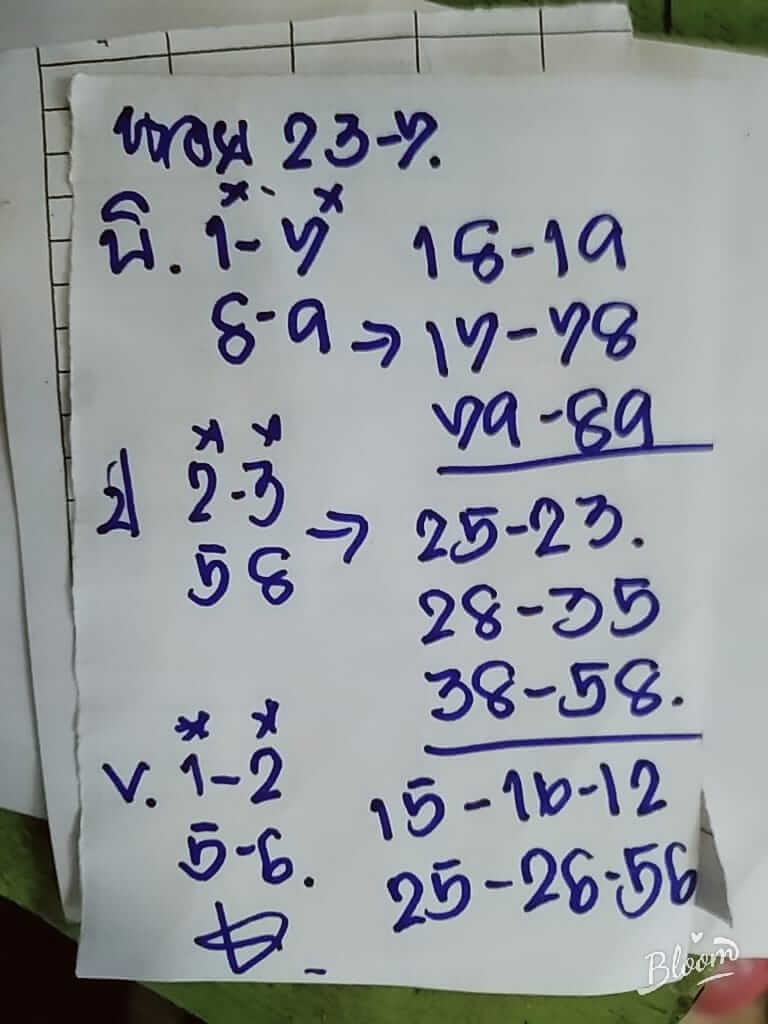 หวย 23-7.
พิ. 1-7 18-19
8-9 → 17-78
79-89
2-3 25-23.
58 → 28-35
38-58.
v. 1-2 15-16-12
5-6. 25-26-56
Bloom